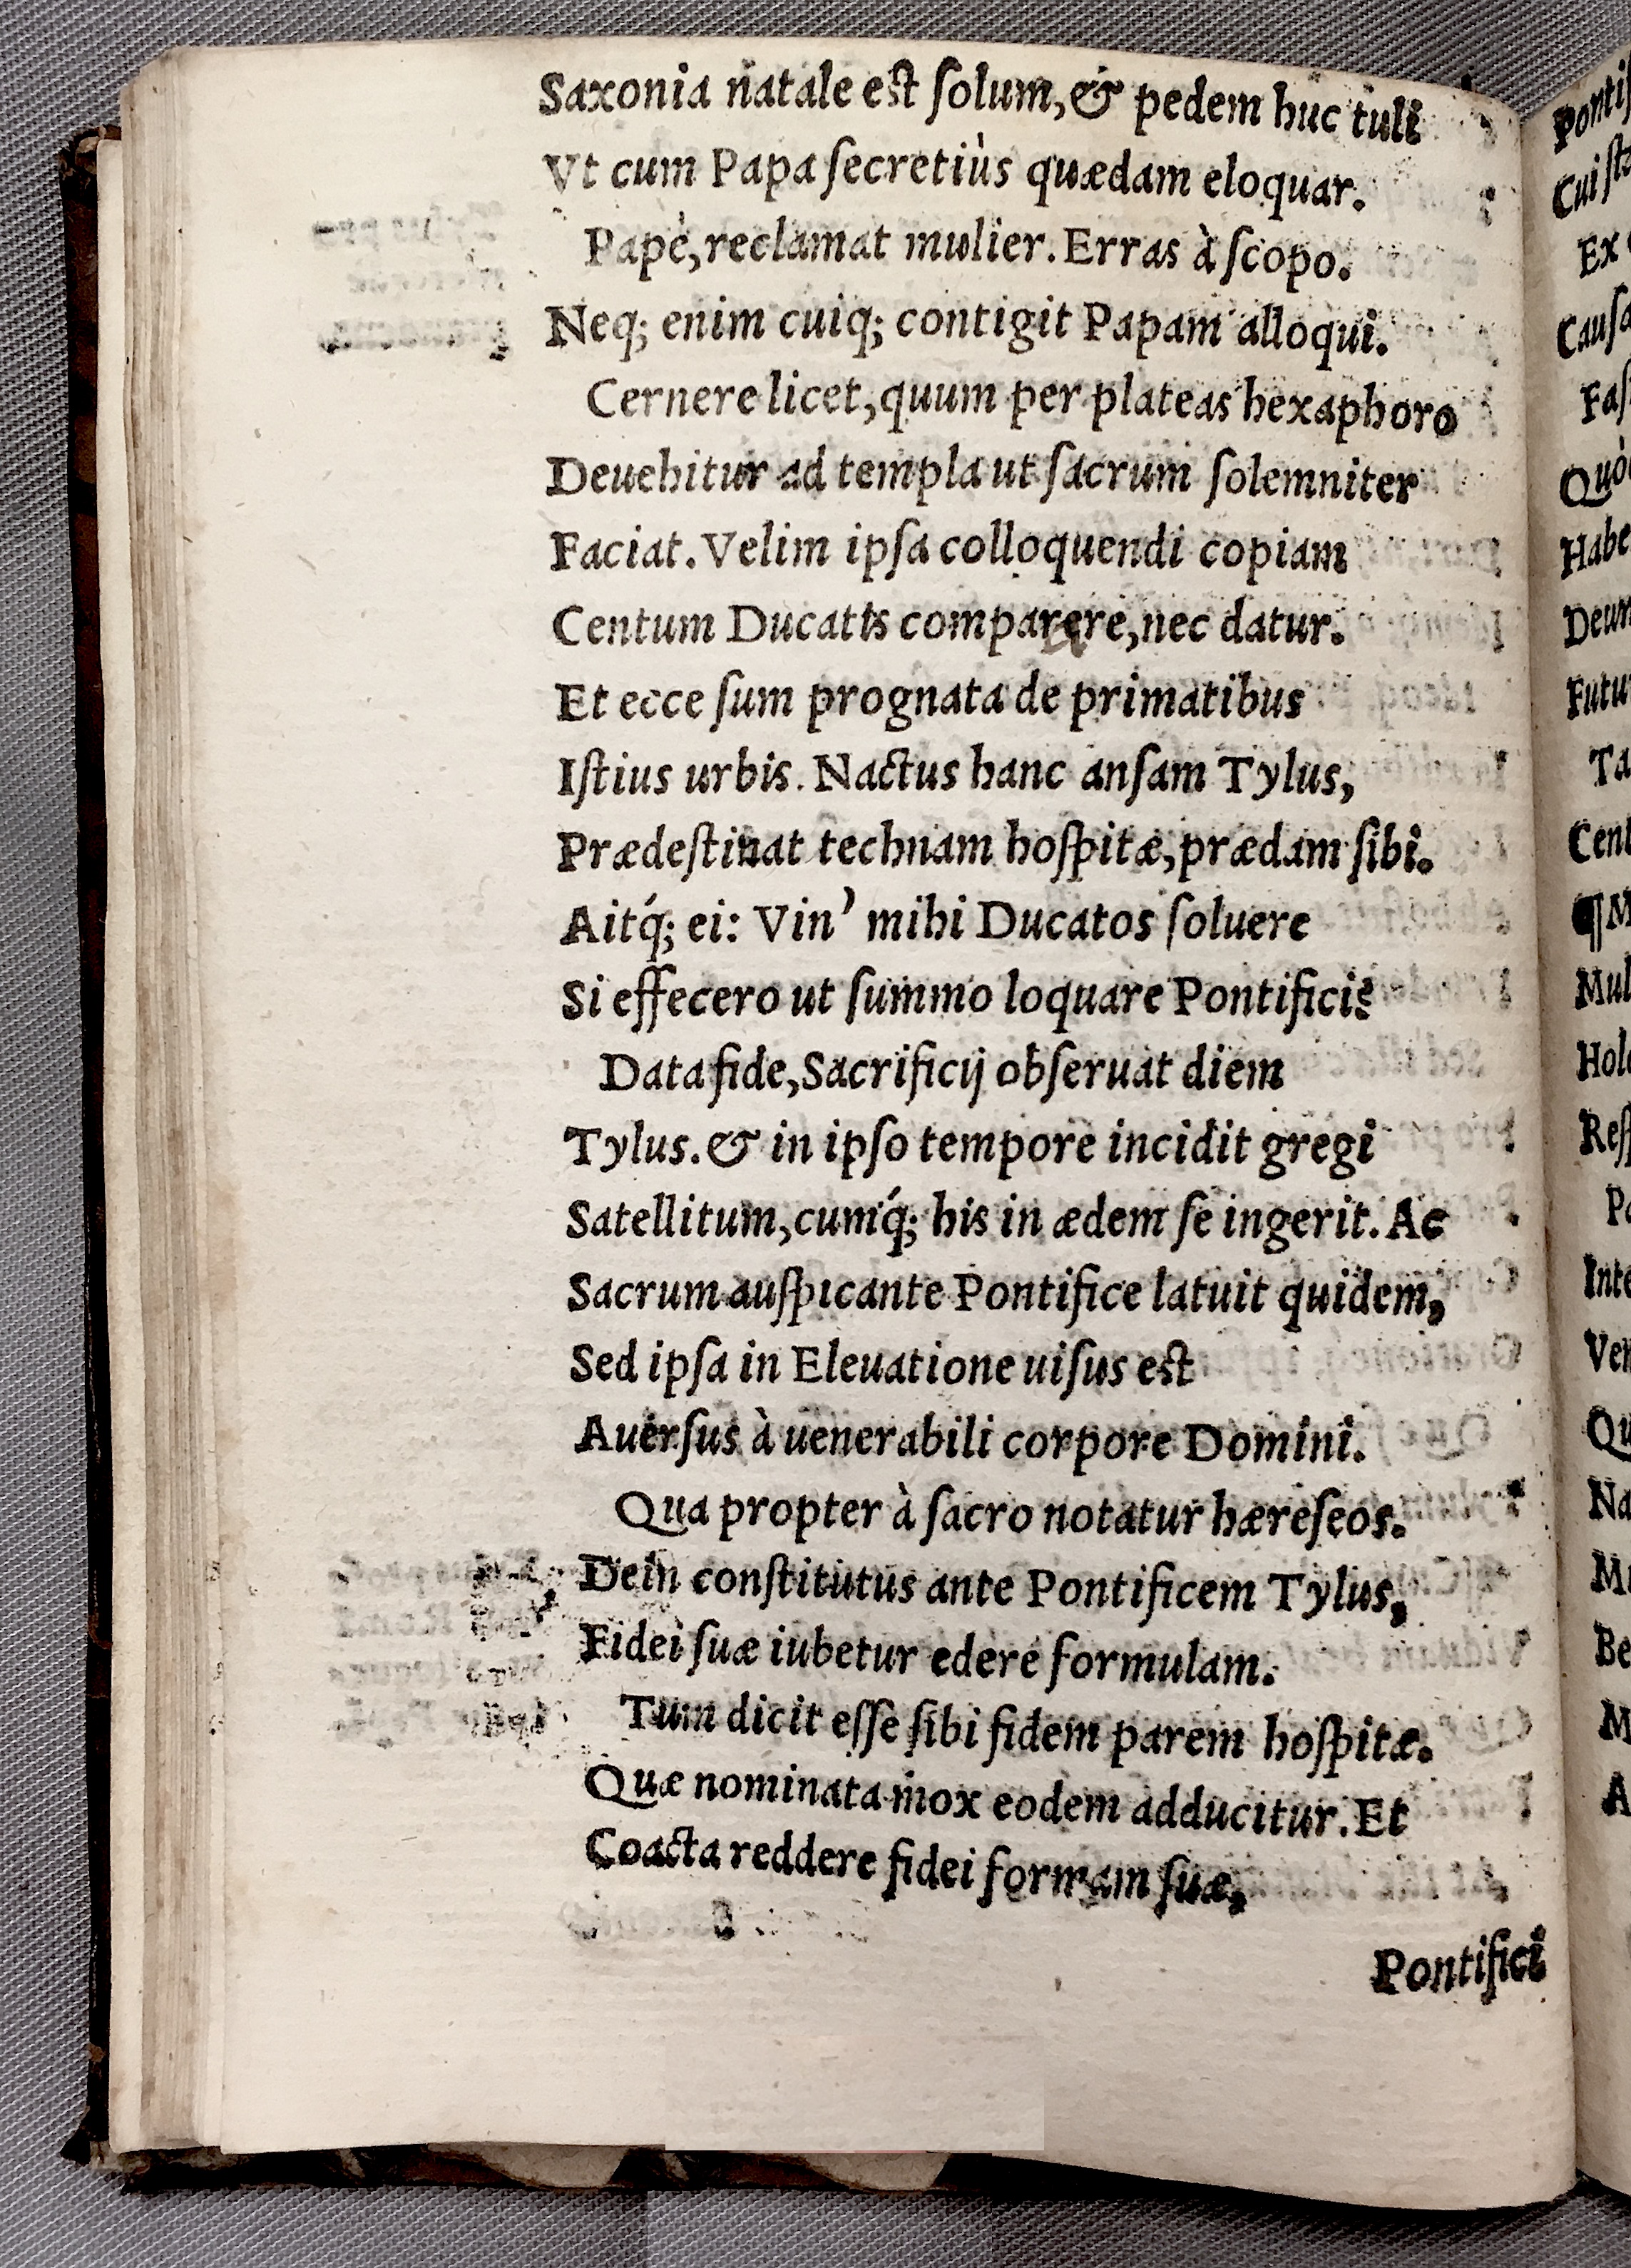 Saxonia natale est ſolum, & pedem huc tuli
Vt cum Papa ſecretiùs quædam eloquar.
Papè, reclamat mulier. Erras à ſcopo.
Neq; enim cuiq; contigit Papam alloqui.
Cernere licet, quum per plateas hexaphoro
Deuehitur ad templa ut ſacrum ſolemniter
Faciat. Velim ipſa colloquendi copiam
Centum Ducatis comparere, nec datur.
Et ecce ſum prognata de primatibus
Iſtius urbis. Nactus hanc anſam Tylus,
Prædeſtinat technam hoſpitæ, prædam ſibi.
Aitq́; ei: Vin’ mihi Ducatos ſoluere
Si effecero ut ſummo loquare Pontifici?
Data fide, Sacrificij obſeruat diem
Tylus. & in ipſo tempore incidit gregi
Satellitum, cumq́; his in ædem ſe ingerit. Ac
Sacrum auſpicante Pontifice latuit quidem,
Sed ipſa in Eleuatione uiſus est
Auerſus à uenerabili corpore Domini.
Qua propter à ſacro notatur hæreſeos.
Dein conſtitutus ante Pontificem Tylus,
Fidei ſuæ iubetur edere formulam.
Tum dicit eſſe ſibi fidem parem hoſpitæ.
Quæ nominata mox eodem adducitur. Et
Coacta reddere fidei formam ſuæ,
Pontifici